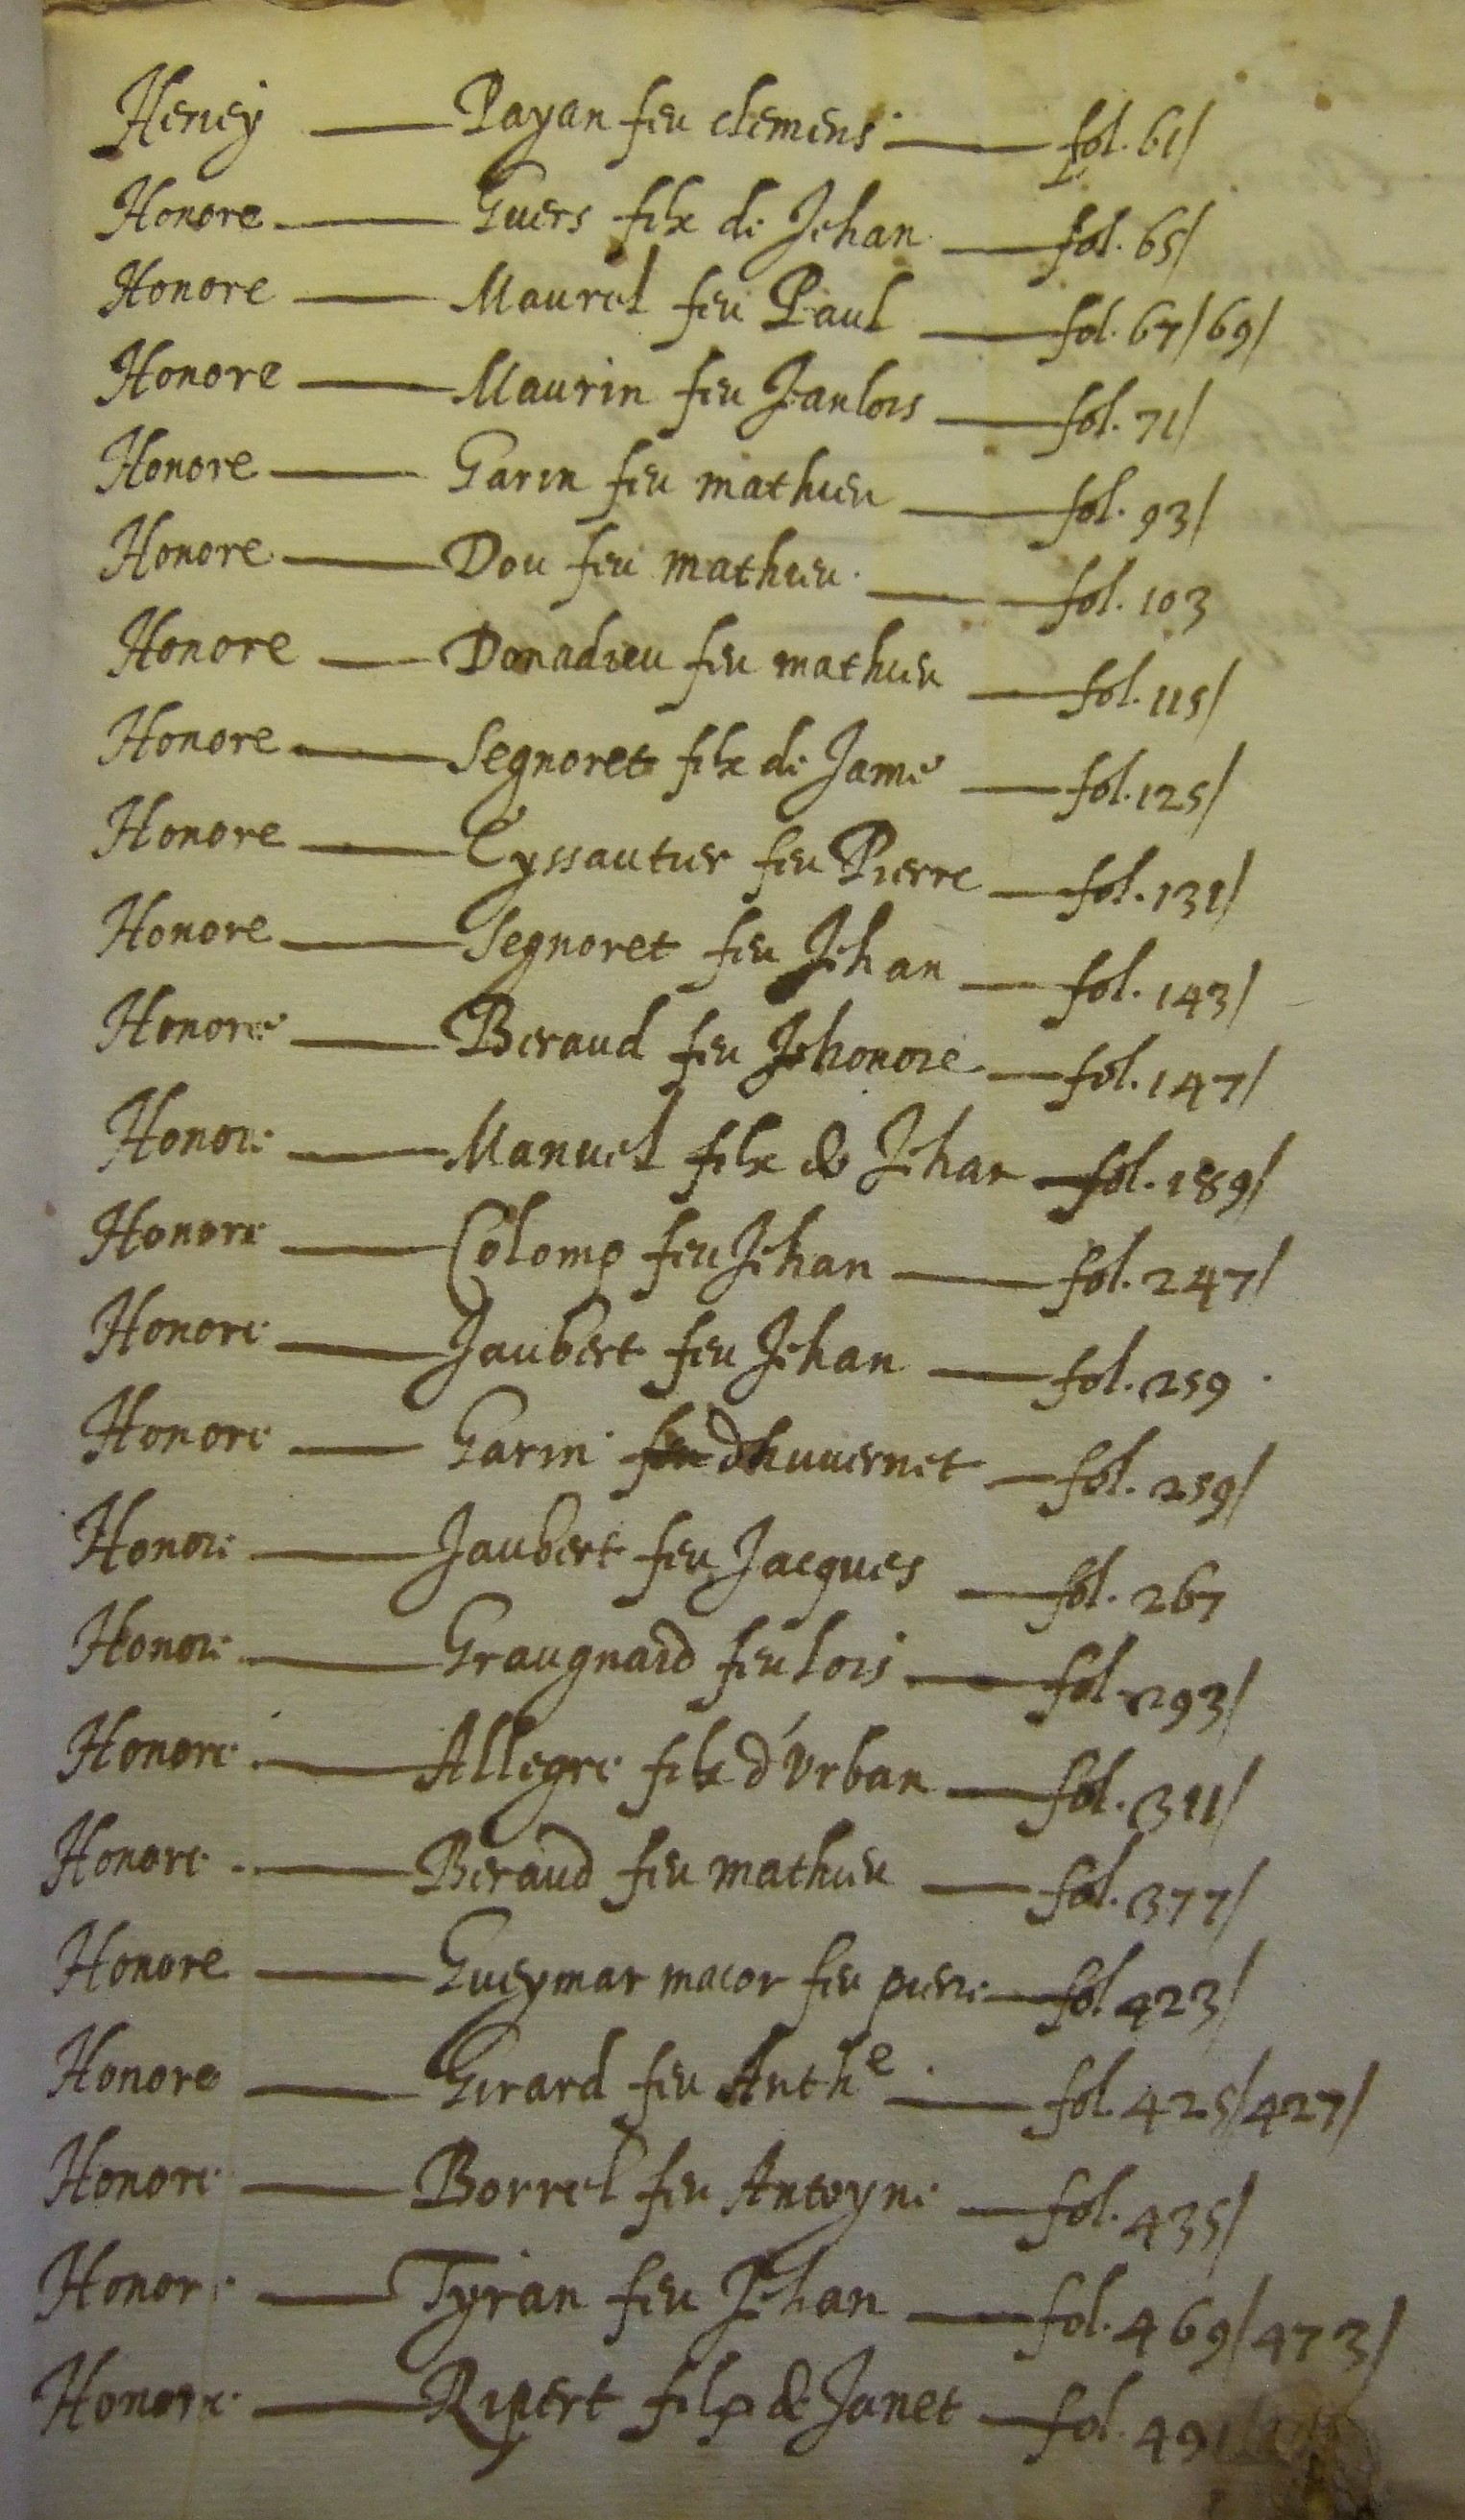 Henrey — Payan feu clemens — fol. 61/
Honore — Guers filz de Jehan — fol. 65/
Honore — Maurel feu Paul — fol. 67/69/
Honore — Maurin feu Jeanlois — fol. 71/
Honore — Garin feu mathieu — fol. 93/
Honore — Dou feu mathieu — fol. 103
Honore — Donadieu feu mathieu — fol. 115/
Honore — Segnoret filz de Jame — fol. 125/
Honore — Eyssautier feu Pierre — fol. 131/
Honore — Segnoret feu Jehan — fol. 143/
Honore — Beraud feu honore — fol. 147/
Honore — Manuel filz de Jehan — fol. 189/
Honore — Colomp feu Jehan — fol. 247/
Honore — Jaubert feu Jehan — fol. 259
Honore — Garin dhuuernet — fol. 259/
Honore — Jaubert feu Jacques — fol. 267
Honore — Graugnard feu lois — fol. 293/
Honore — Allegre filz d'Urban — fol. 311/
Honore — Beraud feu mathieu — fol. 377/
Honore — Gueymar macor feu pierre — fol 423/
Honore — Girard feu Anthe — fol. 425/427/
Honore — Borrel feu Antoyne — fol. 435/
Honore — Tyran feu Jehan — fol. 469/473/
Honore — Ripert filz de Janet — fol. 491/